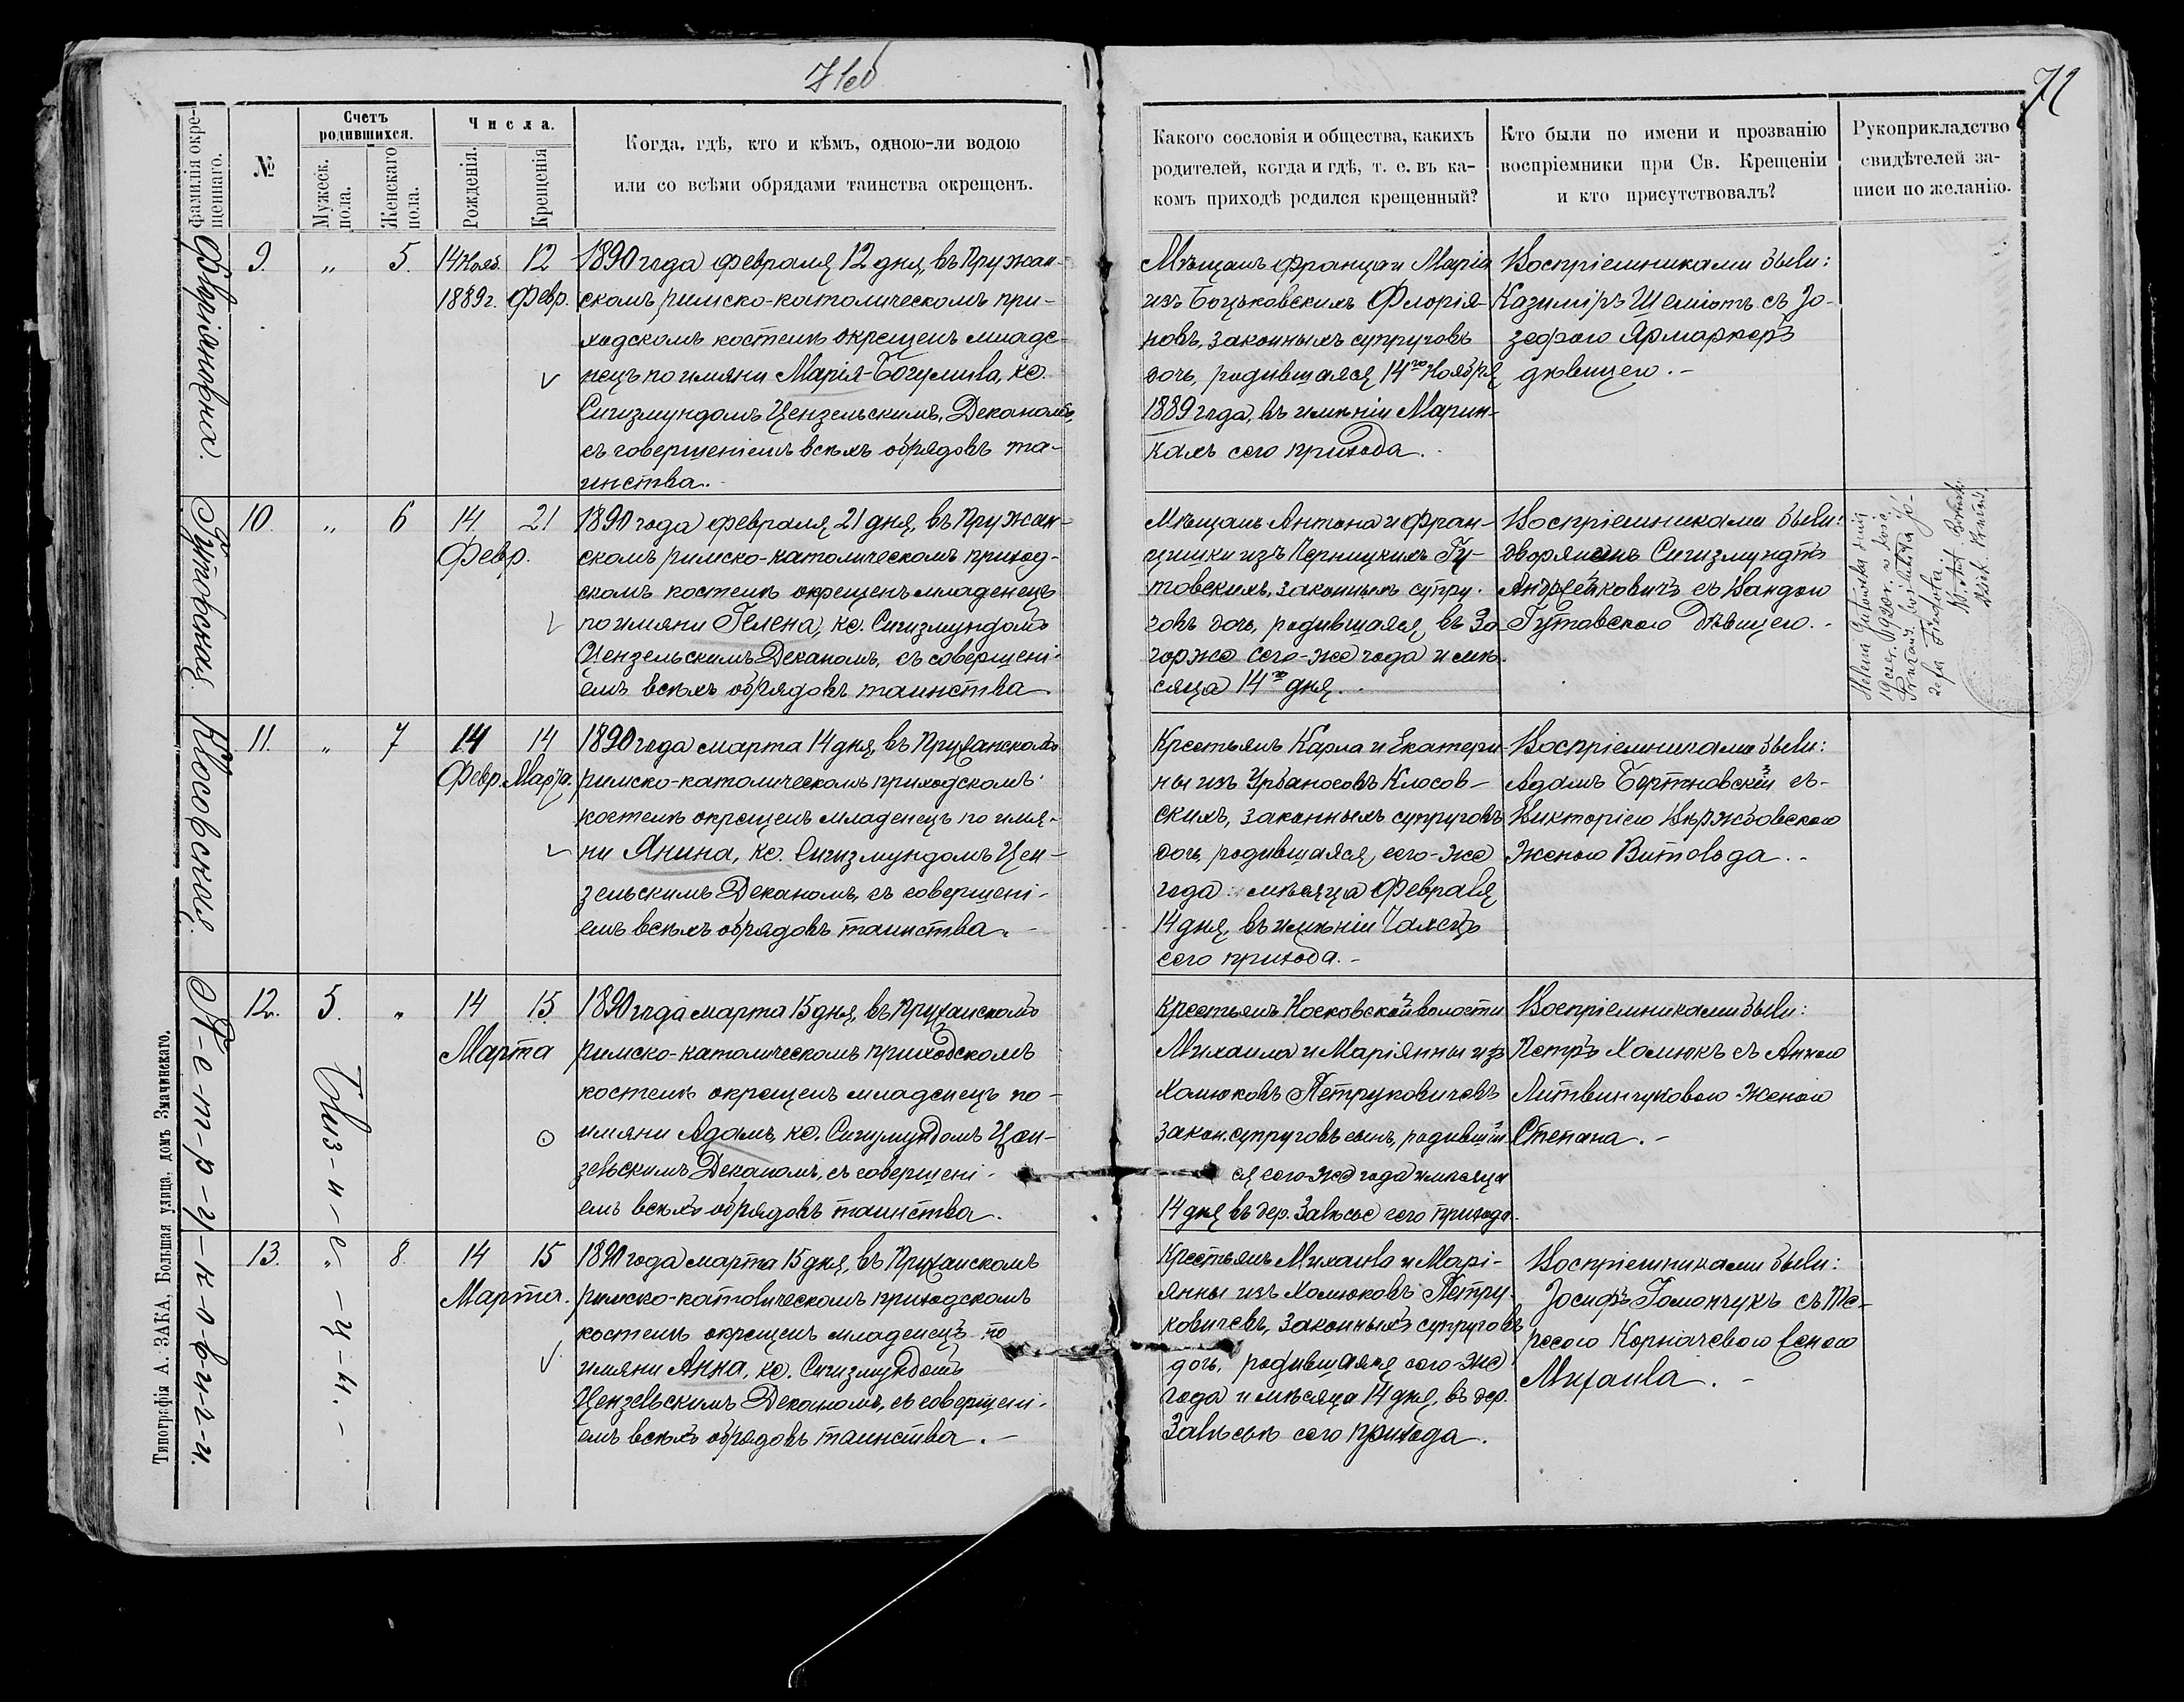 71об
72
фамилія окре-
щеннаго.
№
Счетъ
родившихся.
Мужеск.
пола.
Женскаго
пола.
Числа.
Рожденія.
Крещенія
Когда, гдѣ, кто и кѣмъ, одною-ли водою
или со всѣми обрядами таинства окрещенъ.
Какого сословія и общества, какихъ
родителей, когда и гдѣ, т. е. въ ка-
комъ приходѣ родился крещенный?
Кто были по имени и прозванію
воспріемники при Св. Крещеніи
и кто присутствовалъ?
Рукоприкладство
свидѣтелей за-
писи по желанію.
9.
„
5.
14 Нояб.
1889 г.
12
Февр.
1890 года февраля 12 дня, въ Пружан-
скомъ римско-католическомъ при-
ходскомъ костелѣ окрещенъ младе-
нецъ по имяни Марія-Богумила, кс.
Сигизмундомъ Цензельскимъ, Деканомъ,
съ совершеніемъ всѣхъ обрядовъ та-
инства.
Мѣщанъ Франца и Маріи
изъ Боцьковскихъ Флорія-
новъ, законныхъ супруговъ
дочь, родившаяся 14го Ноября
1889 года, въ имѣніи Марин-
кахъ сего прихода.
Воспріемниками были:
Казимиръ Шеміотъ съ Іо-
зефою Ярмаркеръ
дѣвицею. -
Гутовская.
10.
„
6
14
Февр.
21
1890 года февраля 21 дня, въ Пружан-
скомъ римско-католическомъ приход-
скомъ костелѣ окрещенъ младенецъ
по имяни Гелена, кс. Сигизмундомъ
Цензельскимъ Деканомъ, съ совершені-
емъ всѣхъ обрядовъ таинства
Мѣщанъ Антона и Фран-
цишки изъ Перницкихъ Гу-
товскихъ, законныхъ супру-
говъ дочь, родившаяся, въ За
горже сего-же года и мѣ-
сяца 14го дня.
Воспріемниками были:
дворянинъ Сигизмундъ
Андрейковичъ съ Вандою
Гутовскою дѣвицею. -
Клосовская.
11.
„
7
14
Февр.
14
Марта.
1890 года марта 14 дня, въ Пружанскомъ
римско-католическомъ приходскомъ
костелѣ окрещенъ младенецъ по имя-
ни Янина, кс. Сигизмундомъ Цен-
зельскимъ Деканомъ, съ совершені-
емъ всѣхъ обрядовъ таинства. -
Крестьянъ Карла и Екатери-
ны изъ Урбаносовъ Клосов-
скихъ, законныхъ супруговъ
дочь, родившаяся, сего-же
года мѣсяца Февраля
14 дня, въ имѣніи Чахецъ
сего прихода. -
Воспріемниками были:
Адамъ съ-
Викторіею Вѣржбовскою
женою Витольда. -
П-е-т-р-у-к-о-в-и-ч-и.
Близ-н-е-ц-ы. -
12.
5.
„
14
Марта
15
1890 года марта 15 дня, въ Пружанскомъ
римско-католическомъ приходскомъ
костелѣ окрещенъ младенецъ по-
имяни Адамъ, кс. Сигизмундомъ Цен-
зельскимъ Деканомъ, съ совершені-
емъ всѣхъ обрядовъ таинства.
Крестьянъ Носковской волости
Михаила и Маріянны изъ
Холюковъ Петруковичевъ
закон. супруговъ сынъ, родившій
ся сего-же года и мѣсяца
14 дня въ дер. Залѣсье сего прихода.
Воспріемниками были:
Петръ Холюкъ съ Анною
Литвинчуковою женою
Степана. -
13.
„
8.
14
Марта.
15
1890 года марта 15 дня, въ Пружанскомъ
римско-католическомъ приходскомъ
костелѣ окрещенъ младенецъ по
имяни Анна, кс. Сигизмундомъ
Цензельскимъ Деканомъ, съ совершені-
емъ всѣхъ обрядовъ таинства. -
Крестьянъ Михаила и Марі-
янны изъ Холюковъ Петру-
ковичевъ, законныхъ супруговъ
дочь, родившаяся сего-же
года и мѣсяца 14 дня, въ дер.
Залѣсье сего прихода.
Воспріемниками были:
Іосифъ Гомончукъ съ Те-
ресою Корначевою женою
Михаила. -
Типографія А. ЗАКА, Большая улица, домъ Змачинскаго.